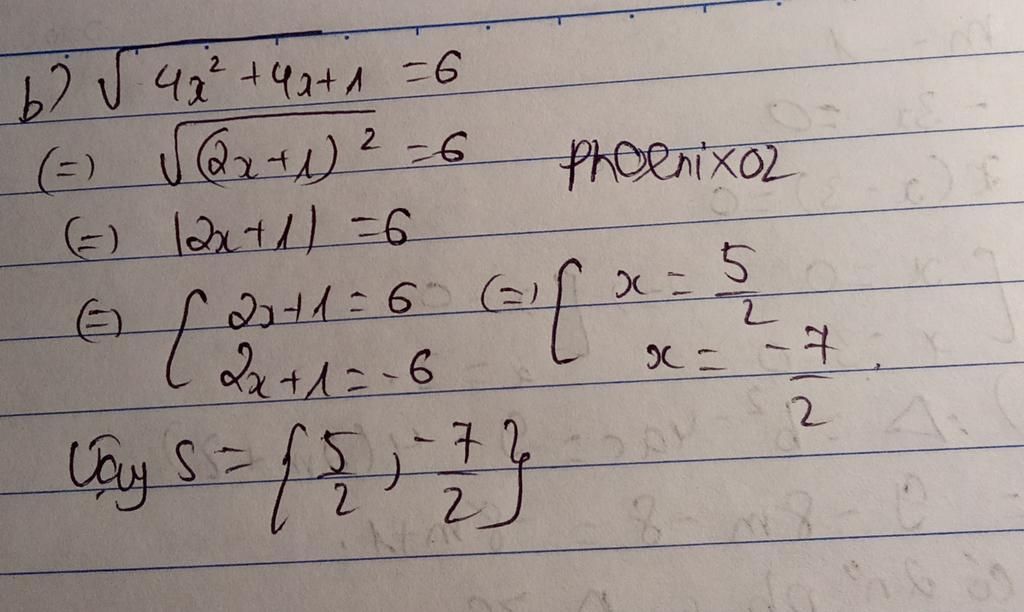 b) √4x² + 4x + 1 = 6
(=) √(2x+1)² = 6
phoenix02
(=) |2x+1| = 6
(=) [ 2x+1 = 6 (=) [ x = 5/2
2x+1 = -6 x = -7/2.
Vậy S = { 5/2 ; -7/2 }